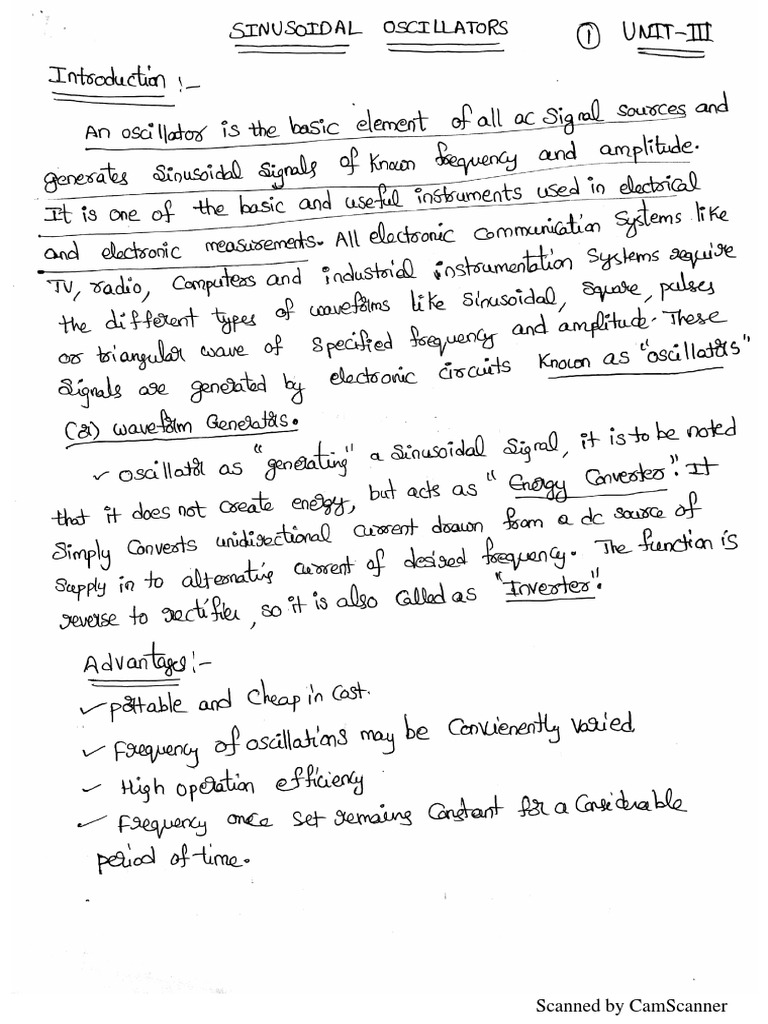 SINUSOIDAL OSCILLATORS ① UNIT-III
Introduction :-
An oscillator is the basic element of all ac Signal sources and
generates Sinusoidal Signals of Known frequency and amplitude.
It is one of the basic and useful instruments used in electrical
and electronic measurements. All electronic communication Systems like
TV, radio, Computers and industrial instrumentation Systems require
the different types of waveforms like Sinusoidal, Square, pulses
or triangular wave of Specified frequency and amplitude. These
Signals are generated by electronic circuits Known as "oscillators"
(or) waveform Generators.
✓ oscillator as "generating" a Sinusoidal Signal, it is to be noted
that it does not create energy, but acts as "Energy Converter". It
Simply Converts unidirectional current drawn from a dc source of
Supply in to alternating current of desired frequency. The function is
reverse to rectifier, so it is also Called as "Inverter".
Advantages :-
✓ portable and Cheap in Cost.
✓ Frequency of oscillations may be Convienently varied
✓ High operation efficiency
✓ Frequency once Set remains Constant for a Considerable
period of time.
Scanned by CamScanner